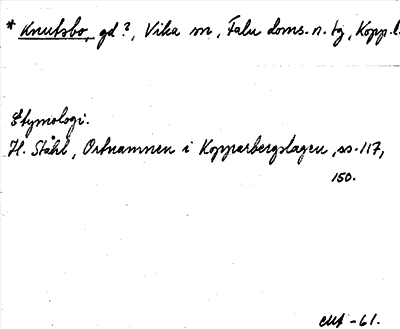 * Knutsbo, gd?, Vika sn, Falu doms. n. tg, Kopp.l.
Etymologi.
H. Ståhl, Ortnamnen i Kopparbergslagen, ss. 117,
150.
-61.